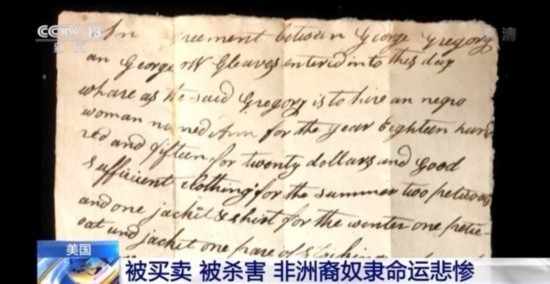 CCTV 13
新闻
In reement betwen George Gregory
an George W Gleaves entered into this day
whare as the said Gregory is to hire an negro
woman named Ann for the year Eighteen hun
red and fifteen for twenty dollars and Good
Sufficient clothing for the summer two peticoa
and one jacket & shirt for the winter one petic
oat and jacket one pare of
美国
被买卖 被杀害 非洲裔奴隶命运悲惨